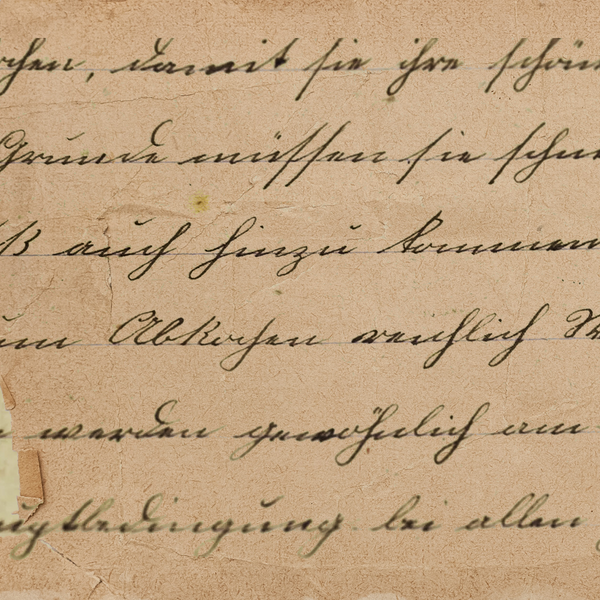 chen, damit sie ihre schön
Grunde müssen sie schne
ß auch hinzu kommen
um Abkochen reichlich W
werden gewöhnlich am
auptbedingung bei allen